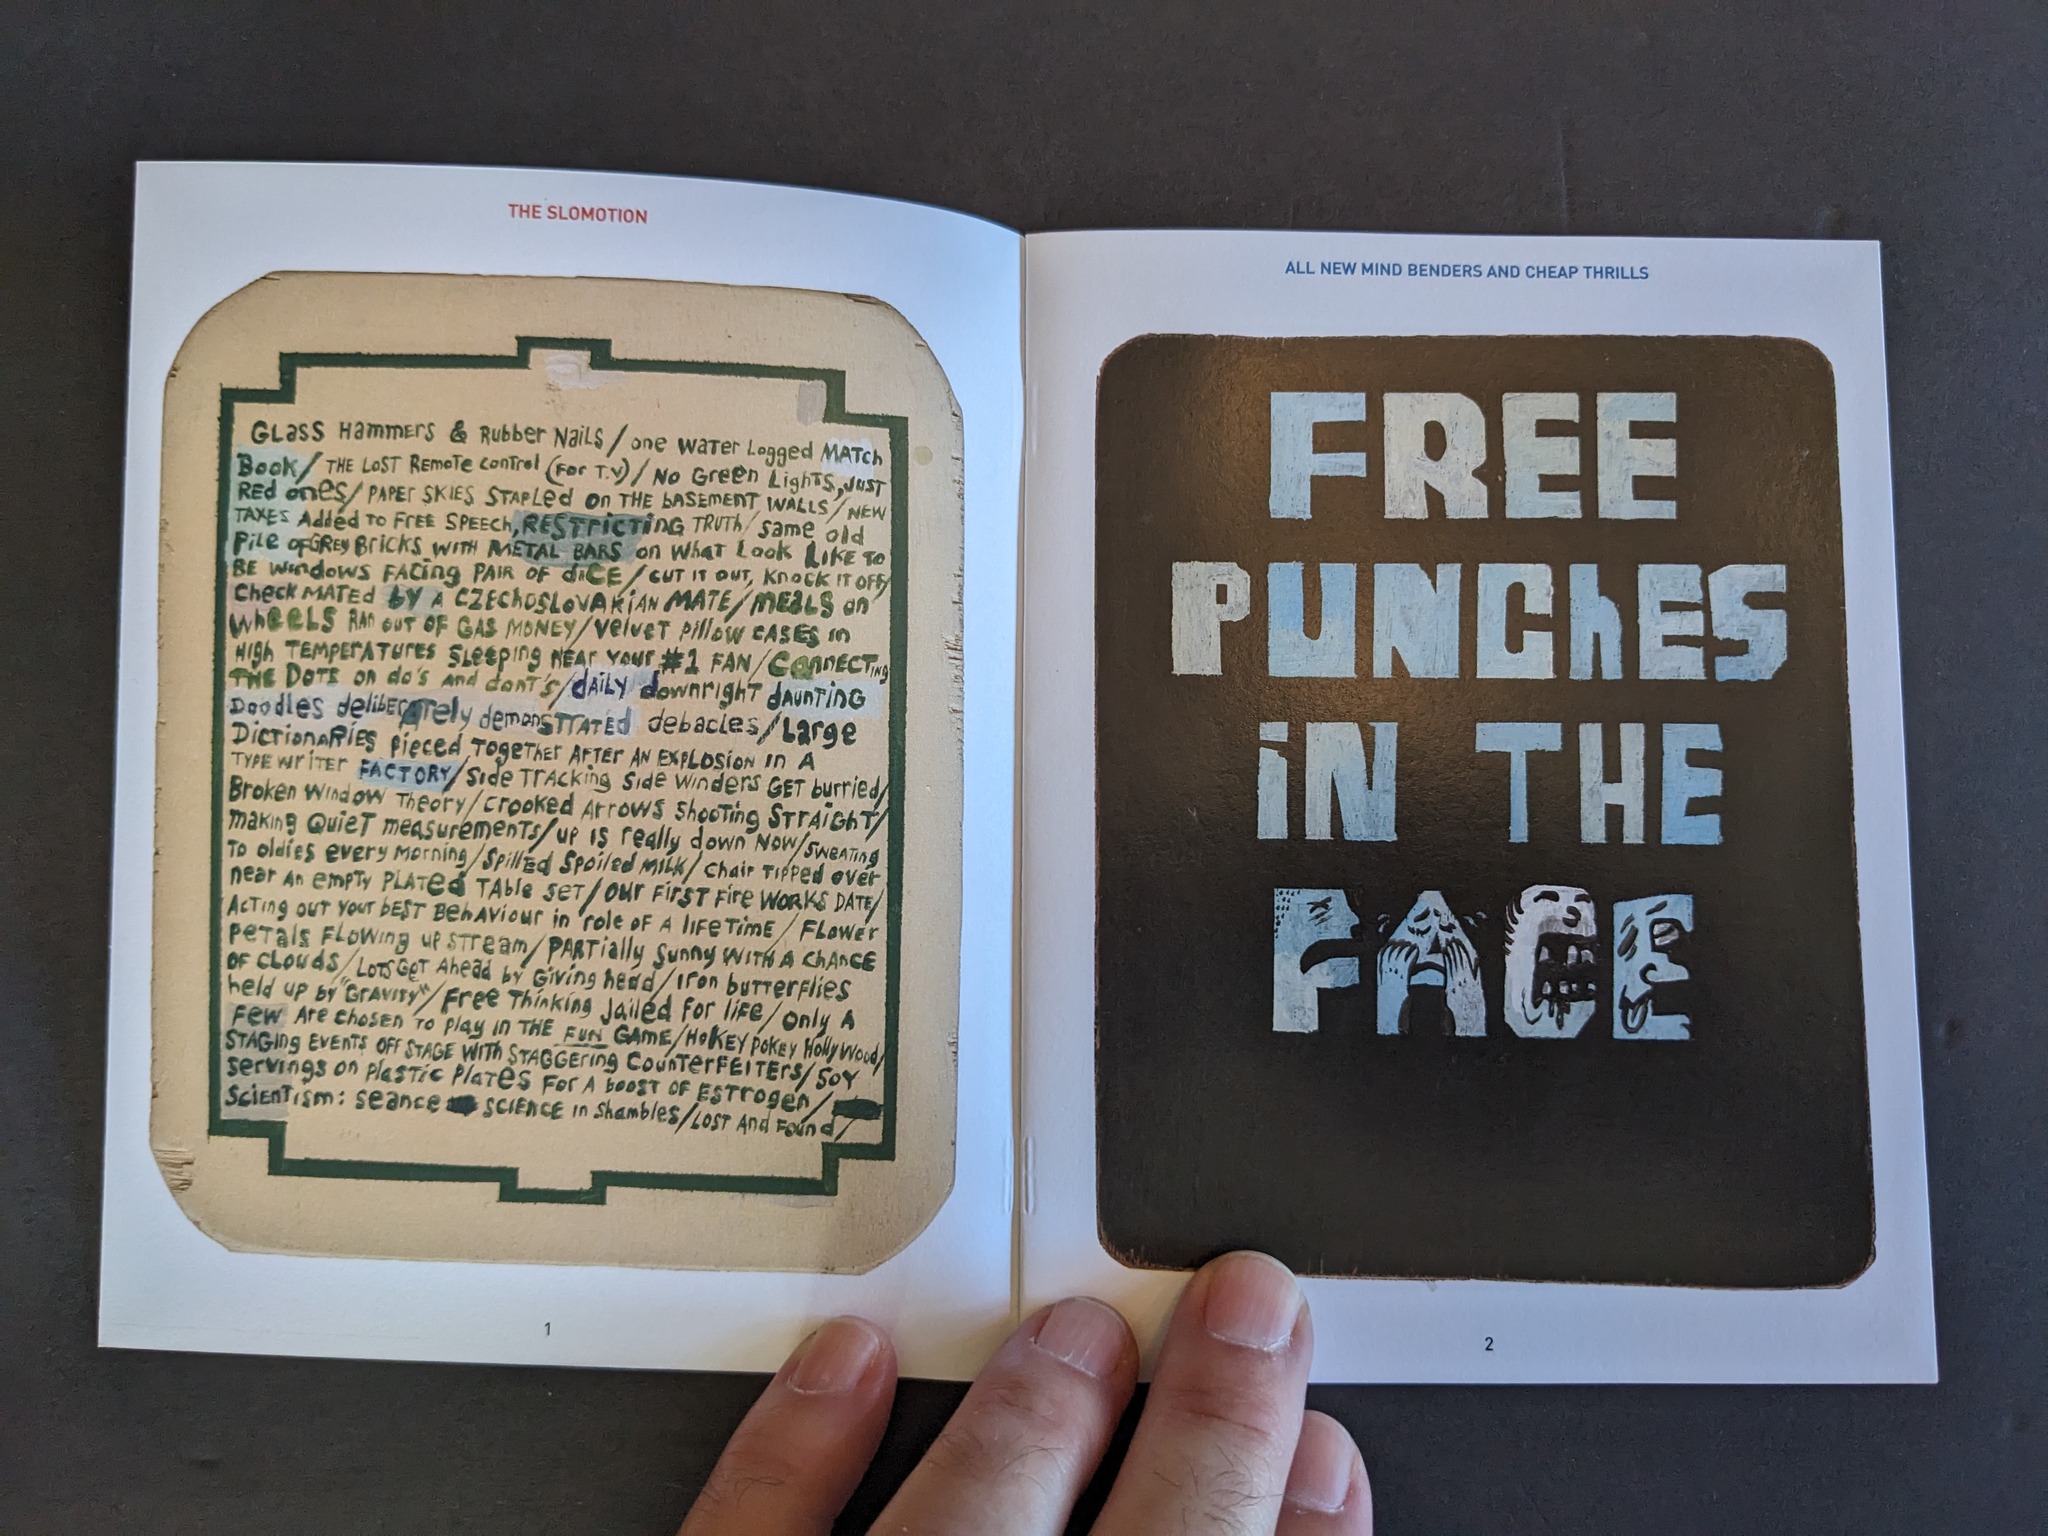 THE SLOMOTION
GLASS HAMMERS & RUBBER NAILS / ONE WATER LOGGED MATCH
BOOK / THE LOST REMOTE CONTROL (FOR T.V) / NO GREEN LIGHTS, JUST
RED ONES / PAPER SKIES STAPLED ON THE BASEMENT WALLS / NEW
TAXES ADDED TO FREE SPEECH, RESTRICTING TRUTH / SAME OLD
PILE OF GREY BRICKS WITH METAL BARS ON WHAT LOOK LIKE TO
BE WINDOWS FACING PAIR OF DICE / CUT IT OUT, KNOCK IT OFF /
CHECK MATED BY A CZECHOSLOVAKIAN MATE / MEALS ON
WHEELS RAN OUT OF GAS MONEY / VELVET PILLOW CASES IN
HIGH TEMPERATURES SLEEPING NEAR YOUR #1 FAN / CONNECTING
THE DOTS ON DO'S AND DONT'S / DAILY DOWNRIGHT DAUNTING
DOODLES DELIBERATELY DEMONSTRATED DEBACLES / LARGE
DICTIONARIES PIECED TOGETHER AFTER AN EXPLOSION IN A
TYPE WRITER FACTORY / SIDE TRACKING SIDE WINDERS GET BURRIED /
BROKEN WINDOW THEORY / CROOKED ARROWS SHOOTING STRAIGHT /
MAKING QUIET MEASUREMENTS / UP IS REALLY DOWN NOW / SWEATING
TO OLDIES EVERY MORNING / SPILLED SPOILED MILK / CHAIR TIPPED OVER
NEAR AN EMPTY PLATED TABLE SET / OUR FIRST FIRE WORKS DATE /
ACTING OUT YOUR BEST BEHAVIOUR IN ROLE OF A LIFETIME / FLOWER
PETALS FLOWING UP STREAM / PARTIALLY SUNNY WITH A CHANCE
OF CLOUDS / LOTS GET AHEAD BY GIVING HEAD / IRON BUTTERFLIES
HELD UP BY "GRAVITY" / FREE THINKING JAILED FOR LIFE / ONLY A
FEW ARE CHOSEN TO PLAY IN THE FUN GAME / HOKEY POKEY HOLLYWOOD /
STAGING EVENTS OFF STAGE WITH STAGGERING COUNTERFEITERS / SOY
SERVINGS ON PLASTIC PLATES FOR A BOOST OF ESTROGEN /
SCIENTISM: SEANCE SCIENCE IN SHAMBLES / LOST AND FOUND /
1
ALL NEW MIND BENDERS AND CHEAP THRILLS
FREE
PUNCHES
IN THE
FACE
2